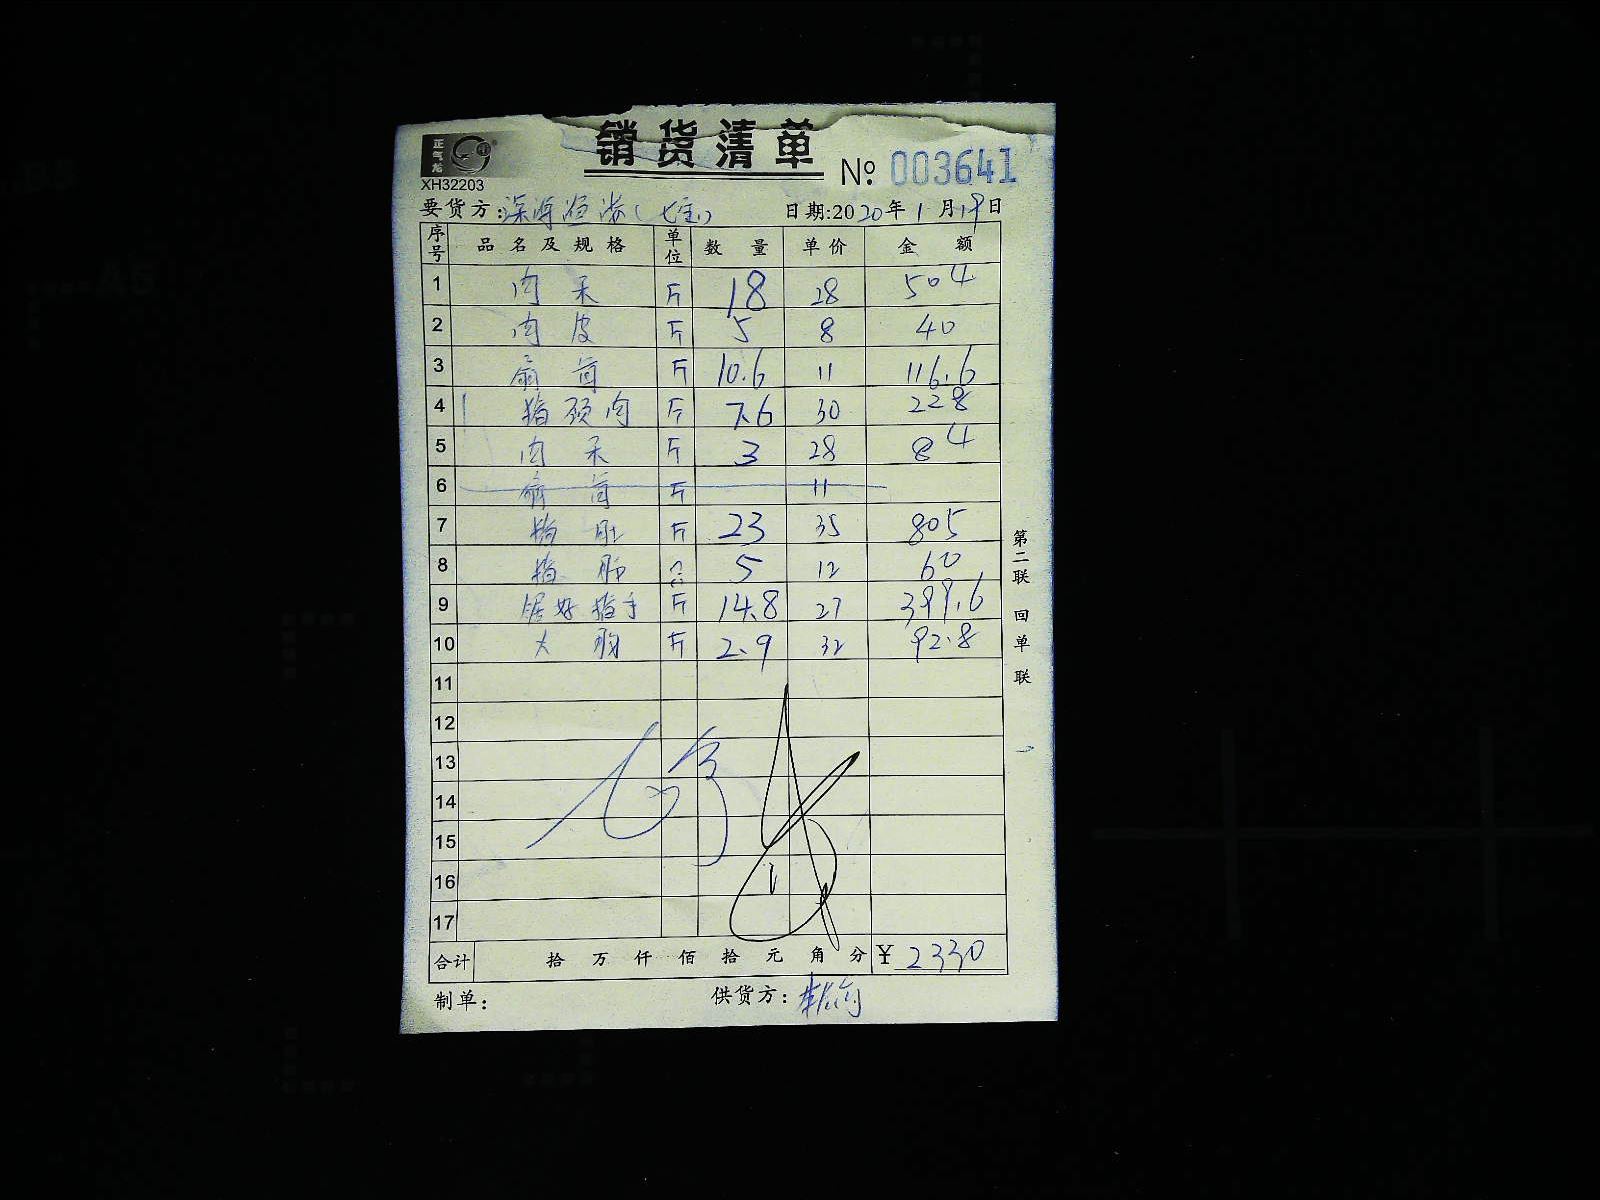 正气龙
销货清单
XH32203
№ 003641
要货方:
日期:2020年1月19日
序号 品名及规格 单位 数量 单价 金额
1 肉禾 斤 18 28 504
2 肉皮 斤 5 8 40
3 扇骨 斤 10.6 11 116.6
4 猪颈肉 斤 7.6 30 228
5 肉禾 斤 3 28 84
6 扇骨 斤 11
7 猪肚 斤 23 35 805
8 猪肺 5 12 60
9 猪手 斤 14.8 27 399.6
10 大 斤 2.9 32 92.8
11
12
13
14
15
16
17
合计 拾万仟佰拾元角分 ¥2330
制单: 供货方:
第二联 回单联